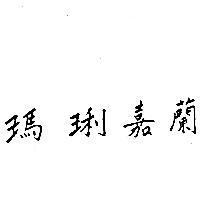 瑪琍嘉蘭